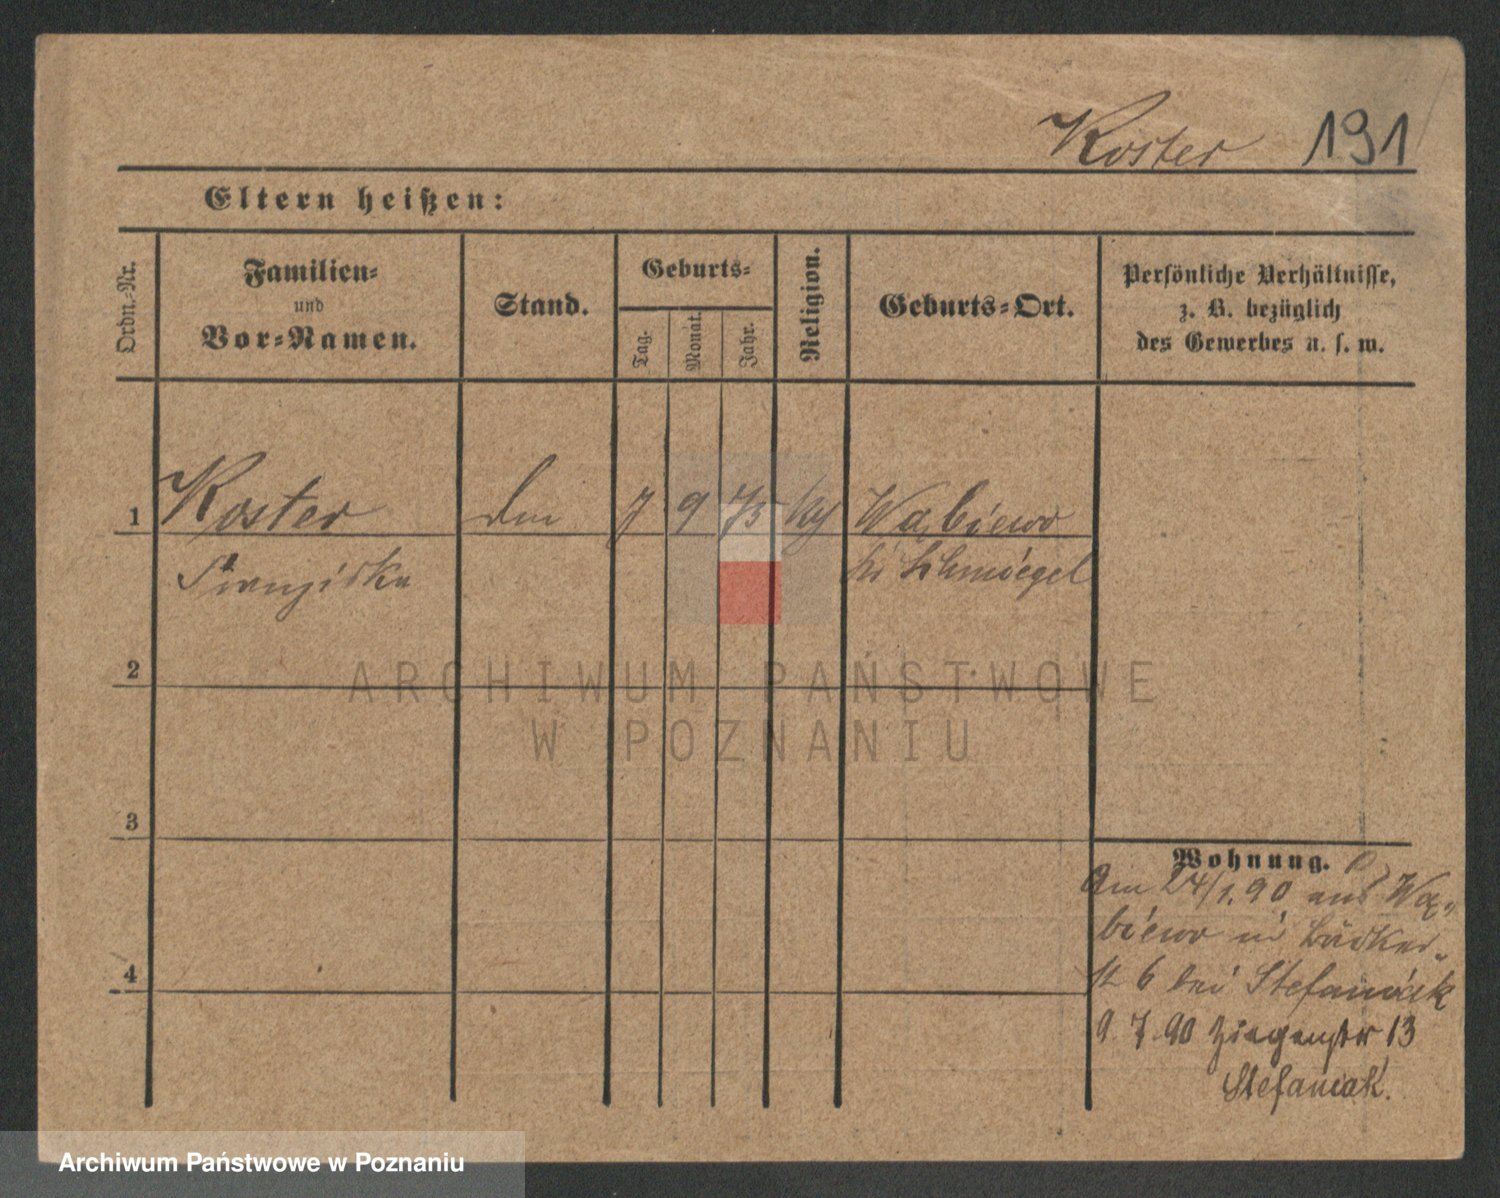 Koster 191
Eltern heißen:
Ordn.-Nr.
Familien-
und
Vor-Namen.
Stand.
Geburts-
Tag.
Monat.
Jahr.
Religion.
Geburts-Ort.
Persönliche Verhältnisse,
z. B. bezüglich
des Gewerbes u. s. w.
1 Koster 7 9 75 Wąbiewo
Franziska bei Schmiegel
2
3
4
Wohnung.
Am 24/1.90 aus Wą-
biewo in Bäcker-
st 6 bei Stefaniak
9.7.90 Ziegenstr 13
Stefaniak.
ARCHIWUM PAŃSTWOWE
W POZNANIU
Archiwum Państwowe w Poznaniu